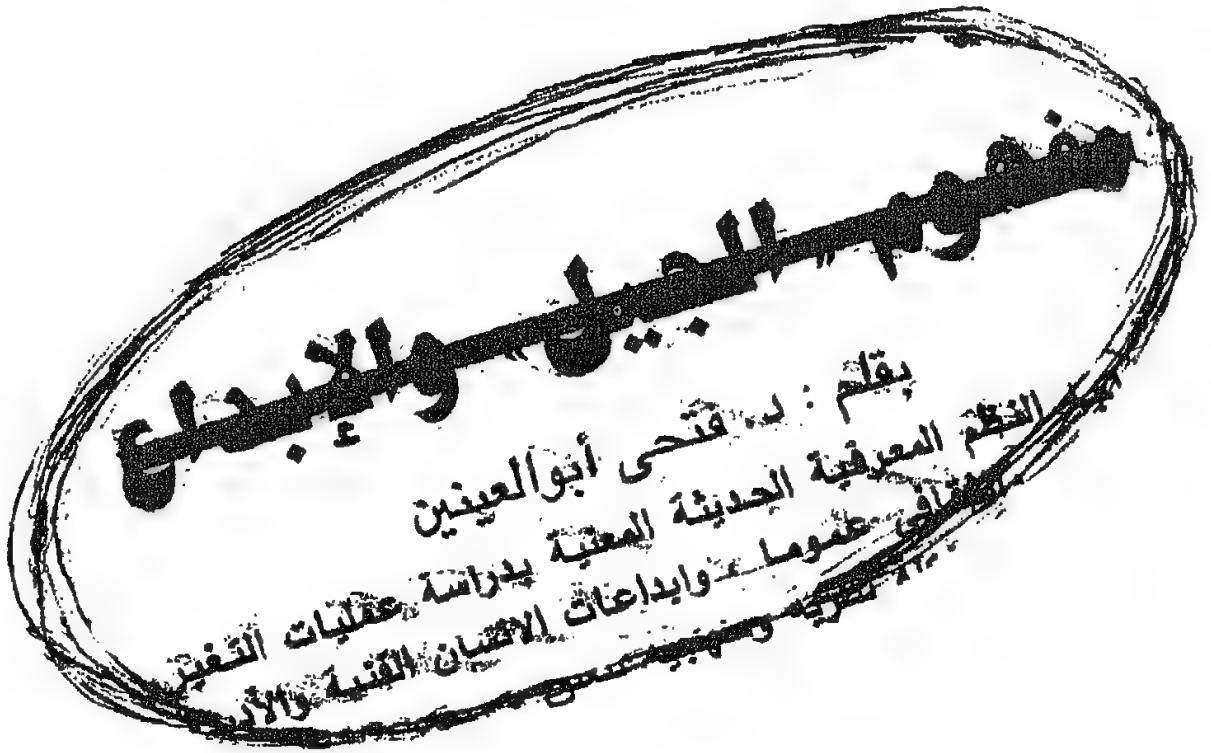 مفهوم «الجيل» والإبداع
بقلم : د. فتحى أبو العينين
النظم المعرفية الحديثة المعنية بدراسة عمليات التغير
عموما ، وابداعات الانسان الفنية